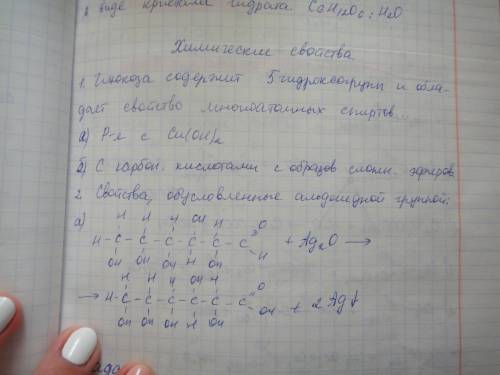 в виде кристалл гидрата C6H12O6 · H2O
Химические свойства
1. Глюкоза содержит 5 гидроксогруппы и обла-
дает свойство многоатомных спиртов...
а) Р-я с Cu(OH)2
б) С карбон. кислотами с образов сложн. эфиров
2. Свойства, обусловленные альдегидной группой:
а) H H H OH H O
H - C - C - C - C - C - C + Ag2O →
OH OH OH H OH H
H H H OH H O
→ H - C - C - C - C - C - C - OH + 2Ag↓
OH OH OH H OH